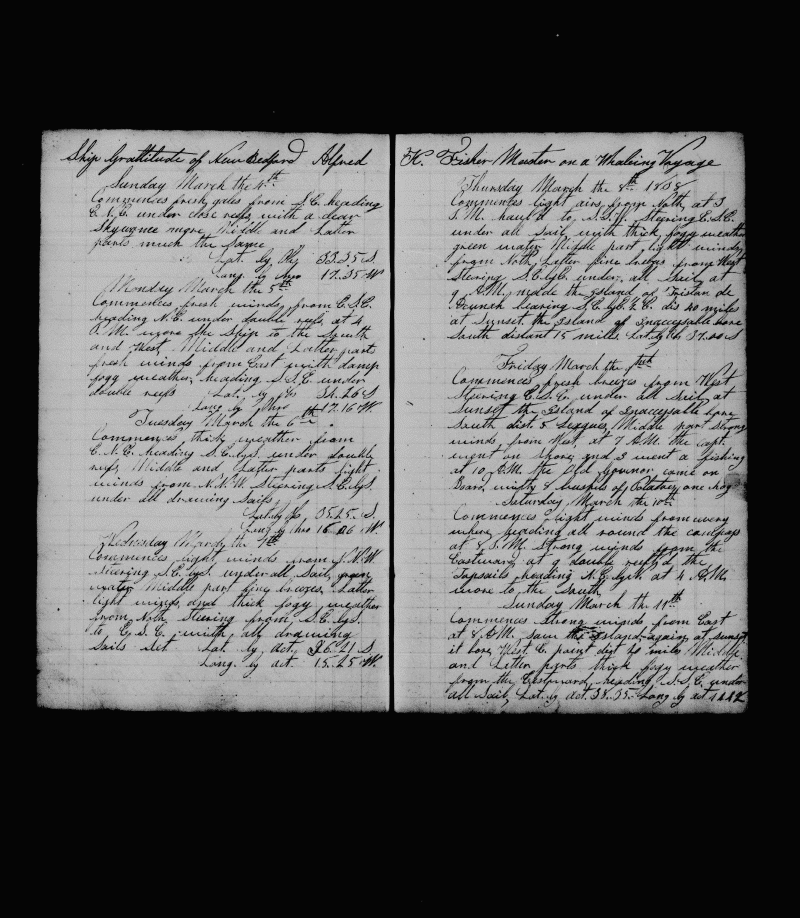 Ship Grattitude of New Bedford Alfred
Sunday March the 4th
Commences fresh gales from S.E. heading
E.N.E. under close reefs with a clear
Sky Middle and Latter
parts much the Same
Lat. by Obs 33.35 S.
Long. by Chro 17.35 W
Monday March the 5th
Commences fresh winds from E.S.E.
heading N.E. under double reefs, at 4
P.M. wore the Ship to the South
and West, Middle and Latter parts
fresh winds from East with damp
fogy weather, heading S.S.E. under
double reefs Lat. by Obs 34.26 S
Long by Chro 17.16 W.
Tuesday March the 6th
Commences thick weather from
E.N.E. heading S.E. by S. under double
reefs, Middle and Latter parts light
winds from N.N.W. Steering S.E. by S.
under all drawing Sails
Lat. by Obs 35.25. S.
Long by Chro 16 06 W.
Wednesday March the 7th
Commences light winds from N.N.W.
Steering S.E. by S. under all Sail, green
water Middle part fine breezes, Latter
light winds, and thick fogy weather
from North, Steering from S.E. by S.
to E.S.E. with all drawing
Sails Set Lat. by act. 36.21 S
Long. by act 15.25 W.
K. Fisher Master on a Whaleing Voyage
Thursday March the 8th 1858
Commences light airs from North, at 3
P.M. haul'd to Steering E.S.E.
under all Sail with thick fogy weather
green water Middle part, light winds
from North, Latter fine breezes from West
Steering S.E. by E. under all Sail at
A.M. made the Island of Tristan de
bearing S.E. by E. dis 40 miles
at Sunset the Island of Inaccessable bore
South distant 15 miles Lat. by Obs 37.00 S
Friday March the 9th
Commences fresh breezes from West
Steering E.S.E. under all Sail at
Sunset the Island of Inaccessable bore
South dist. 5 Leagues, Middle part Strong
winds from West, at 7 A.M. the Capt.
went on Shore and 3 went a fishing
at 10 A.M. the Old Govonor came on
Board with 8 bushels of Potatoes, one hog
Saturday March the 10th
Commences light winds from every
where heading all round the compass
at 8 P.M. Strong winds from the
Eastward, at 9 double reef'd the
Topsails heading N.E. by N. at 4 A.M.
wore to the South
Sunday March the 11th
Commences Strong winds from East
at 8 A.M. saw the Island again, at sunset
it bore West E. point dist 40 miles Middle
and Latter parts thick fogy weather
from the Eastward, heading S.S.E. under
all Sail, Lat. by act. 38.35. Long by act